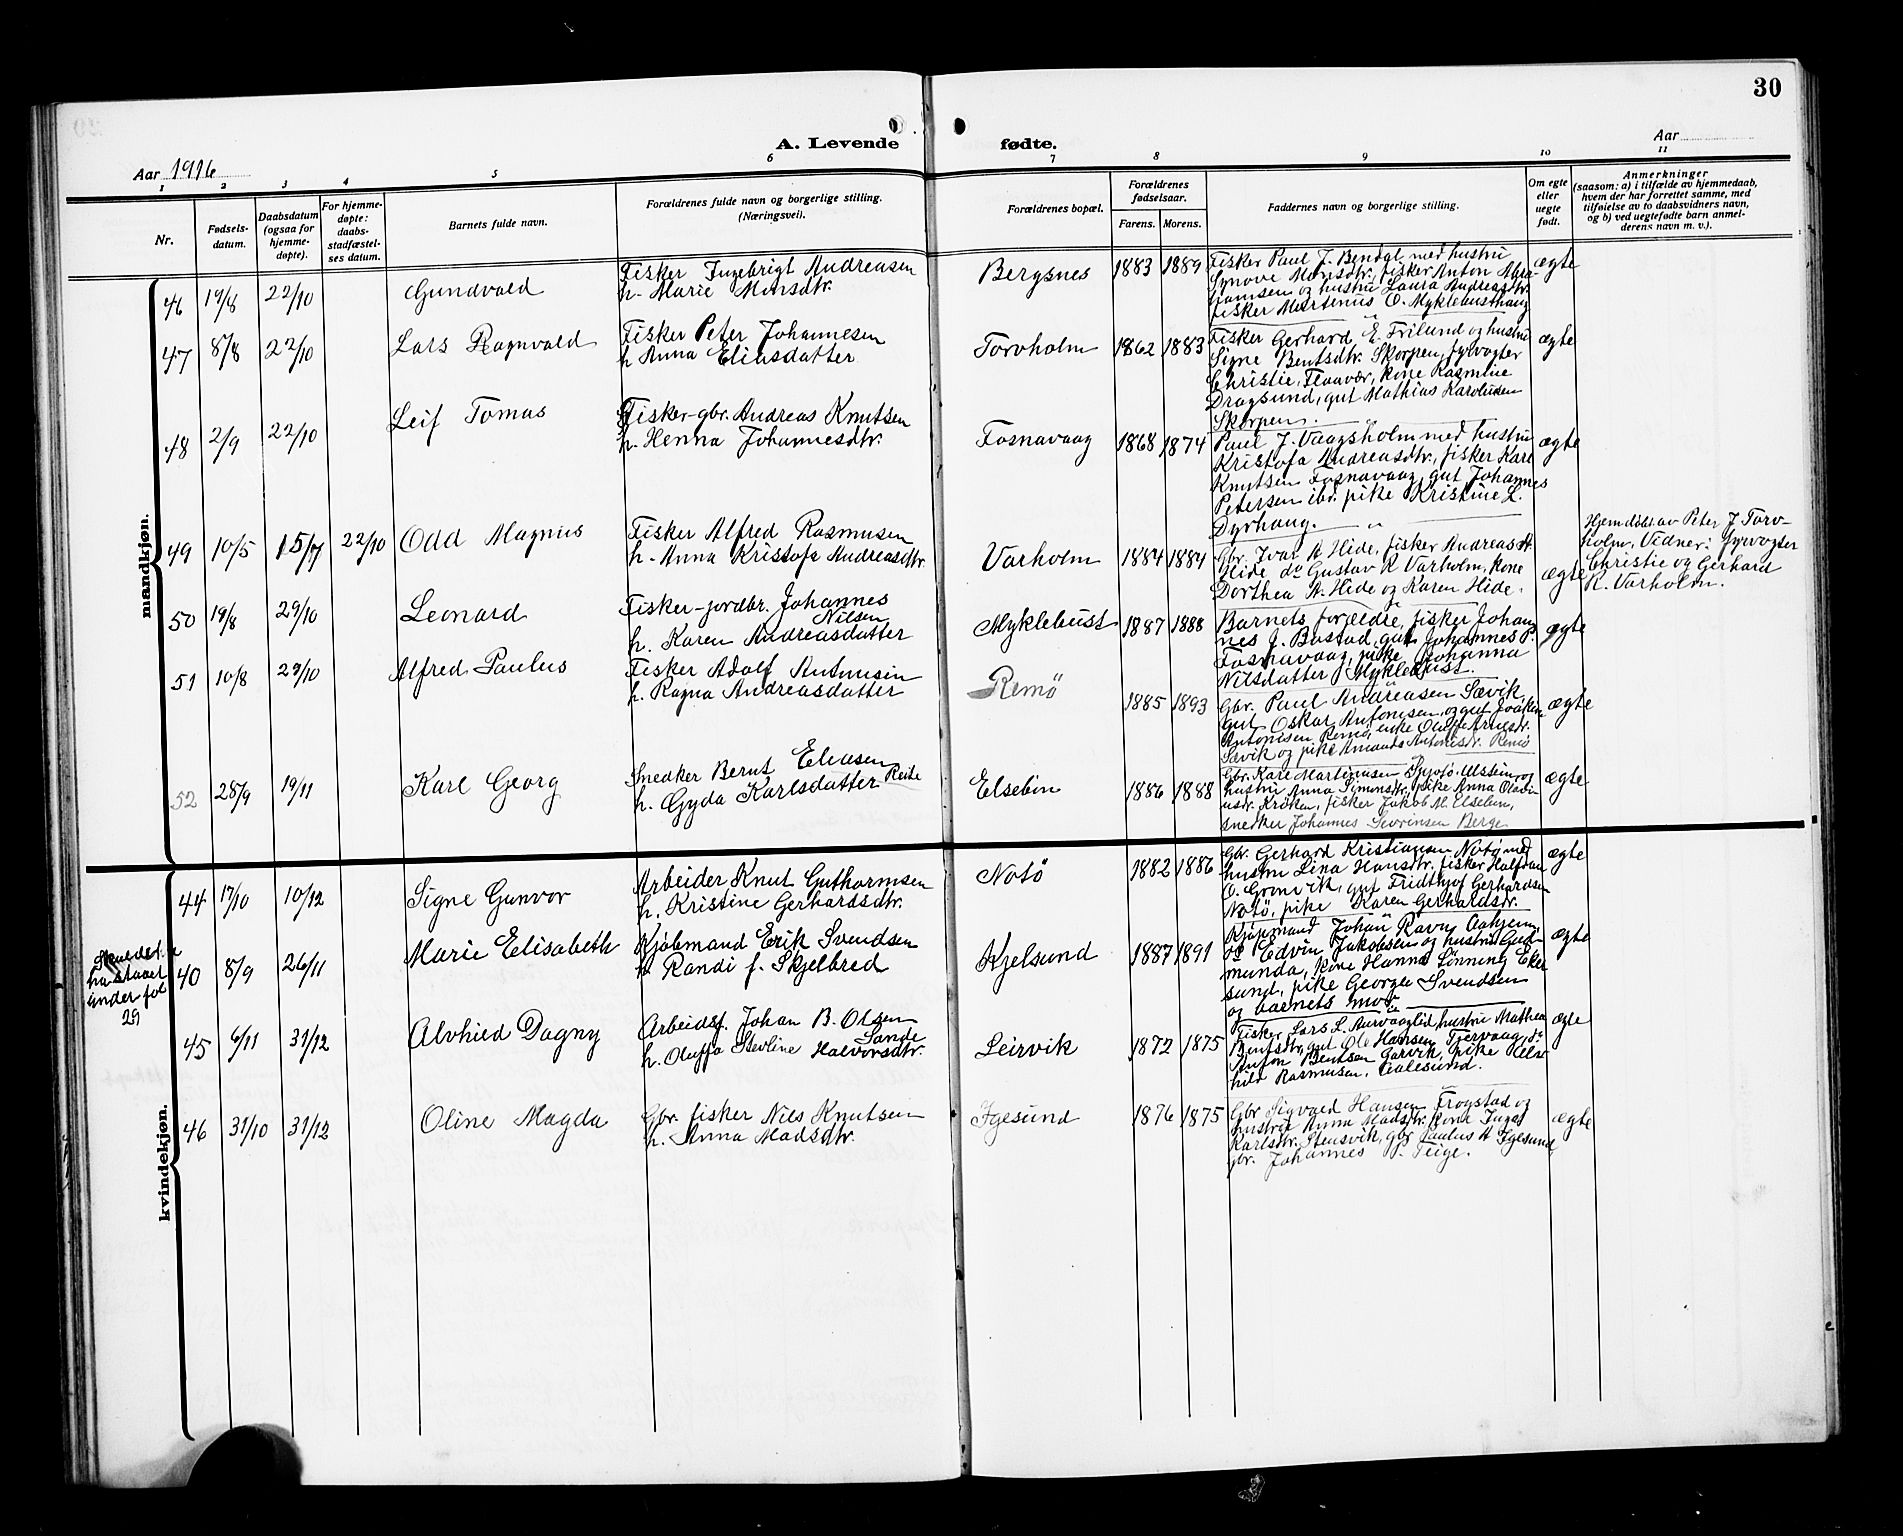 30
A. Levende fødte.
Aar 1916
Aar
1 2 3 4 5 6 7 8 9 10 11
Nr.
Fødsels-
datum.
Daabsdatum
(ogsaa for
hjemme-
døpte).
For hjemme-
døpte:
daabs-
stadfæstel-
ses datum.
Barnets fulde navn.
Forældrenes fulde navn og borgerlige stilling.
(Næringsvei).
Forældrenes bopæl.
Forældrenes
fødselsaar.
Farens. Morens.
Faddernes navn og borgerlige stilling.
Om egte
eller
uegte
født.
Anmerkninger
(saasom: a) i tilfælde av hjemmedaab,
hvem der har forrettet samme, med
tilføielse av to daabsvidners navn,
og b) ved uegtefødte barn anmel-
derens navn m. v.).
mandkjøn.
46 19/8 22/10 Gundvald
Fisker Ingebrigt Andreasen
h. Marie Monsdtr.
Bergsnes 1883 1889
Fisker Paul J. Bendal med hustru
Synove Monsdtr., fisker Anton Abra-
hamsen og hustru Laura Andreasdtr.
fisker Martinus O. Myklebusthaug
ægte
47 8/8 22/10 Lars Ragnvald
Fisker Peter Johannesen
h. Anna Eliasdatter
Torvholm 1862 1883
Fisker Gerhard E. Frilund og hustru
Signe Bentsdtr. Skorpen, fyrvogter
Christie, Flaavær, kone Rasmine
Dragsund, gut Mathias Karolusen
Skorpen.
ægte
48 2/9 22/10 Leif Tomas
Fisker-gbr. Andreas Knutsen
h. Henna Johannesdtr.
Fosnavaag 1868 1874
Paul J. Vaagsholm med hustru
Kristofa Andreasdtr., fisker Kare
Knutsen Fosnavaag, gut Johannes
Petersen ibr. pike Kristine L.
Dyrhaug.
ægte
49 10/5 15/7 22/10 Odd Magnus
Fisker Alfred Rasmusen
h. Anna Kristofa Andreasdtr.
Varholm 1884 1884
Gbr. Ivar A Hide, fisker Andreas A.
Hide do Gustav R Varholm, kone
Dorthea A. Hide og Karen Hide.
ægte
Hjemdøbt av Peter J. Torv-
holm. Vidner: fyrvogter
Christie og Gerhard
R. Varholm.
50 19/8 29/10 Leonard
Fisker-jordbr. Johannes
Nilsen
h. Karen Andreasdatter
Myklebust 1887 1888
Barnets forældre, fisker Johan
nes J. Bostad, gut Johannes P.
Fosnavaag, pike Johanna
Nilsdatter Myklebust.
ægte
51 10/8 29/10 Alfred Paulus
Fisker Adolf Antonisen
h. Ragna Andreasdatter
Remö 1885 1893
Gbr. Paul Andreasen Sævik,
gut Oskar Antonisen, og gut Joakim
Antonisen Remö, enke Oluffa Arnesdtr.
Sævik og pike Amanda Antonisdtr. Remö
ægte
52 28/9 19/11 Karl Georg
Snedker Bernt Eliasen
Reite
h. Gyda Karlsdatter
Elsebön 1886 1888
Gbr. Kare Martinusen Ulstein og
hustru Anna Simonsdtr., pike Anna
Kröken, fisker Jakob M. Elsebön,
snedker Johannes Sevrinsen Berge
ægte
kvindekjøn.
44 17/10 10/12 Signe Gunvor
Arbeider Knut Guthormsen
h. Kristine Gerhardsdtr.
Notö 1882 1886
Gbr. Gerhard Kristiansen Notö med
hustru Lina Hansdtr. fisker Halfdan
O. Grönvik, gut Fridthjof Gerhardsen
Notö, pike Karen Gerhardsdtr.
ægte
Skulde
ha staaet
under fol
29
40 8/9 26/11 Marie Elisabeth
Kjöbmand Erik Svendsen
h. Randi f. Skjelbred
Kjelsund 1887 1891
Kjøpmand Johan Ravn Aahjem
do Edvin Jakobsen og hustru Gud-
munda, kone Hanna Lönning Eker
sund, pike Georgea Svendsen
og barnets mor
ægte
45 6/11 31/12 Alvhild Dagny
Arbeidsf. Johan B. Olsen
Sande
h. Oluffa Stevline Halvorsdtr.
Leirvik 1872 1875
Fisker Lars L. Aurvaaglid, hustru Mathea
Bentsdtr., gut Ole Hansen Tjervaag, do
Anton Bentsen Garvik, pike
hild Rasmusen, Aalesund.
ægte
46 31/10 31/12 Oline Magda
Gbr. fisker Nils Knutsen
h. Anna Madsdtr.
Igesund 1876 1875
Gbr Sigvald Hansen Frogstad og
hustru Anna Madsdtr., kona Inga
Karlsdtr. Stensvik, gbr. Paulus A Igesund,
gbr. Johannes - Teige.
ægte